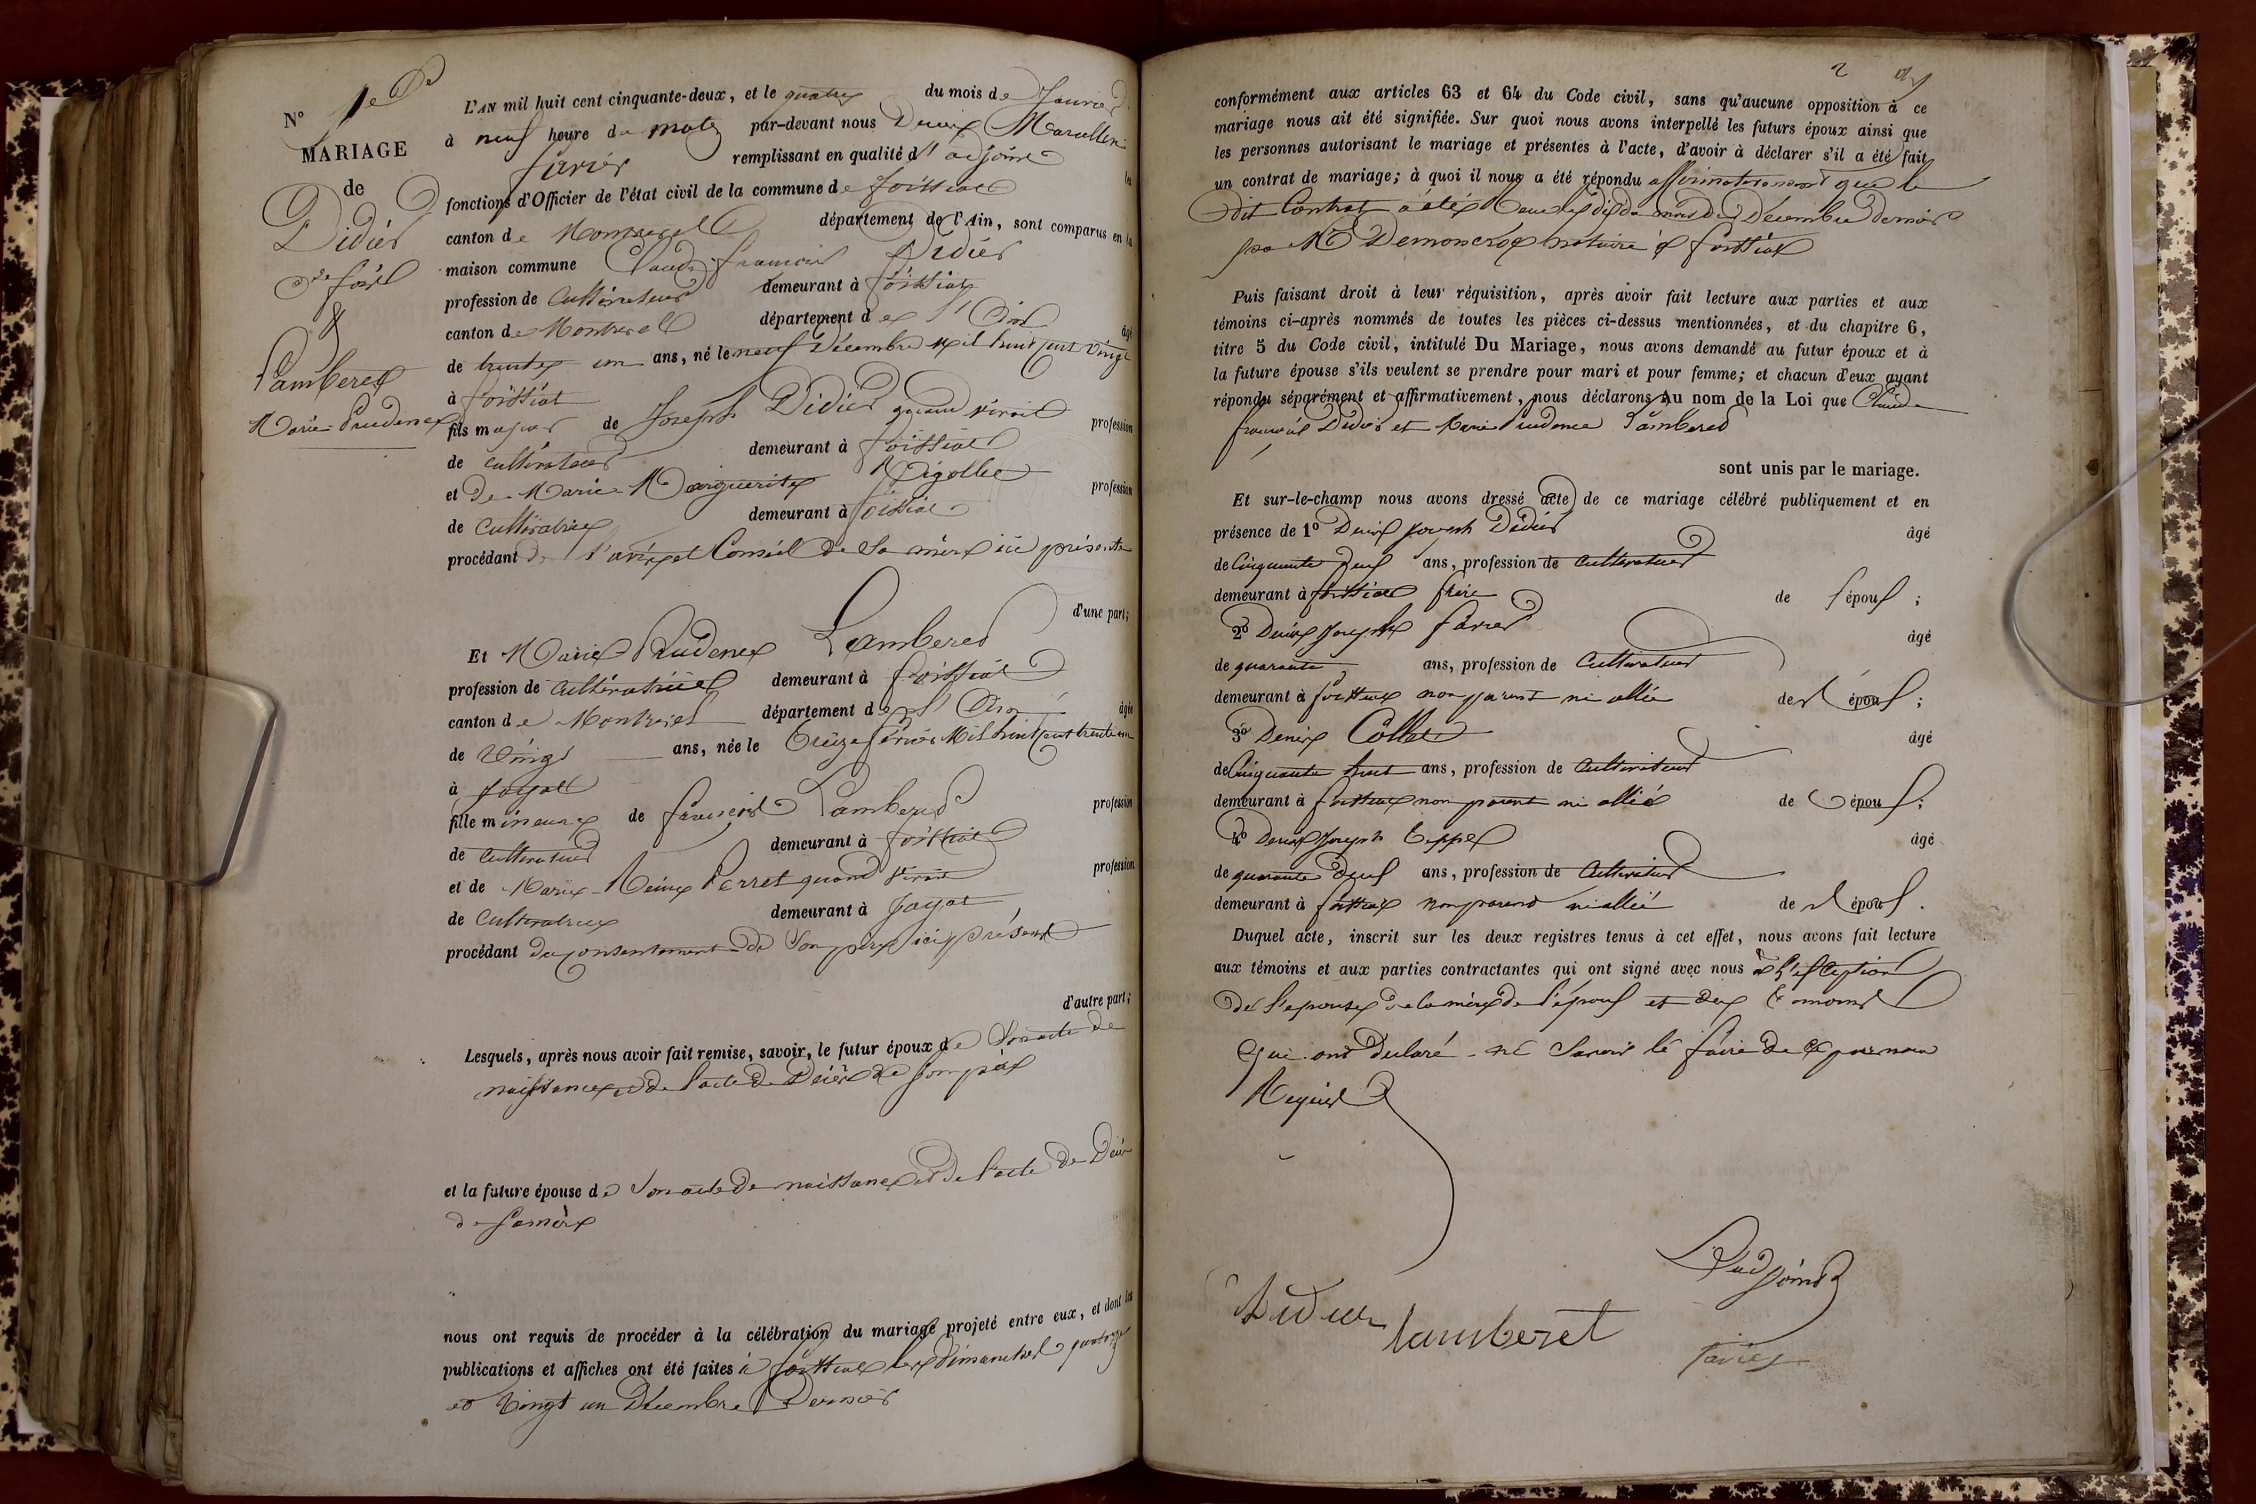 N° 1er
MARIAGE
de
Didier
&
Lamberet
Marie Prudence
L'AN mil huit cent cinquante-deux, et le quatre du mois de Janvier
à neuf heure du matin par-devant nous Denis Marcellin
favier remplissant en qualité d'adjoint les
fonctions d'Officier de l'état civil de la commune de foissiat
canton de Montrevel département de l'Ain, sont comparus en la
maison commune Claude françois Didier
profession de Cultivateur demeurant à foissiat
canton de Montrevel département de l'Ain âgé
de trente un ans, né le neuf Décembre mil huit cent vingt
à foissiat
fils majeur de Joseph Didier quand vivait profession
de cultivateur demeurant à foissiat
et de Marie Marguerite Rigollet profession
de Cultivatrice demeurant à foissiat
procédant de l'avis et Conseil de Sa mère ici présente
d'une part;
Et Marie Prudence Lamberet
profession de cultivatrice demeurant à foissiat
canton de Montrevel département de l'Ain âgée
de Vingt ans, née le treize février Mil huit cent trente un
à Jayat
fille mineure de françois Lamberet profession
de cultivateur demeurant à foissiat
et de Marie Reine Perret quand vivait profession
de Cultivatrice demeurant à Jayat
procédant du consentement de Son père ici présent
d'autre part;
Lesquels, après nous avoir fait remise, savoir, le futur époux de Son acte de
naissance et de l'acte de Décès de son père
et la future épouse de Son acte de naissance et de l'acte de Décès
de sa mère
nous ont requis de procéder à la célébration du mariage projeté entre eux, et dont les
publications et affiches ont été faites à foissiat les dimanches quatorze
et Vingt un Décembre Dernier
2
conformément aux articles 63 et 64 du Code civil, sans qu'aucune opposition à ce
mariage nous ait été signifiée. Sur quoi nous avons interpellé les futurs époux ainsi que
les personnes autorisant le mariage et présentes à l'acte, d'avoir à déclarer s'il a été fait
un contrat de mariage; à quoi il nous a été répondu affirmativement que le
dit Contrat a été Reçu le dix du mois de Décembre dernier
par Me Demoncroz notaire à foissiat
Puis faisant droit à leur réquisition, après avoir fait lecture aux parties et aux
témoins ci-après nommés de toutes les pièces ci-dessus mentionnées, et du chapitre 6,
titre 5 du Code civil, intitulé Du Mariage, nous avons demandé au futur époux et à
la future épouse s'ils veulent se prendre pour mari et pour femme; et chacun d'eux ayant
répondu séparément et affirmativement, nous déclarons Au nom de la Loi que Claude
françois Didier et Marie Prudence Lamberet
sont unis par le mariage.
Et sur-le-champ nous avons dressé acte de ce mariage célébré publiquement et en
présence de 1° Denis Joseph Didier âgé
de Cinquante deux ans, profession de cultivateur
demeurant à foissiat frère de l'époux;
2° Denis Joseph favier âgé
de quarante ans, profession de Cultivateur
demeurant à foissiat non parent ni allié de l'époux;
3° Denis Collet âgé
de Cinquante huit ans, profession de Cultivateur
demeurant à foissiat non parent ni allié de l'époux;
4° Denis Joseph Teppe âgé
de quarante deux ans, profession de Cultivateur
demeurant à foissiat non parent ni allié de l'époux.
Duquel acte, inscrit sur les deux registres tenus à cet effet, nous avons fait lecture
aux témoins et aux parties contractantes qui ont signé avec nous à l'exception
de l'épouse de la mère de l'époux et des témoins
Qui ont déclaré ne Savoir le faire de ce par nous
Requis
L'adjoint
Didier
lamberet
favier